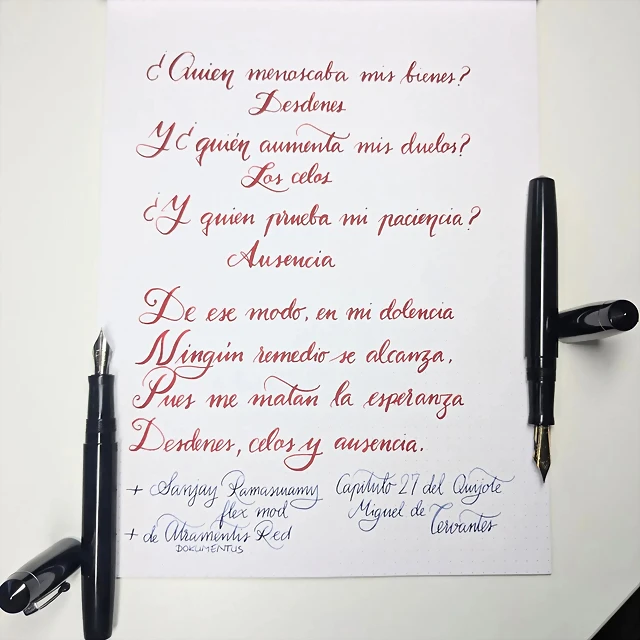 ¿Quien menoscaba mis bienes?
Desdenes
Y ¿quién aumenta mis duelos?
Los celos
¿Y quien prueba mi paciencia?
Ausencia
De ese modo, en mi dolencia
Ningún remedio se alcanza,
Pues me matan la esperanza
Desdenes, celos y ausencia.
+ Sanjay Ramaswamy
flex mod
+ de Atramentis Red
DOKUMENTUS
Capítulo 27 del Quijote
Miguel de
Cervantes